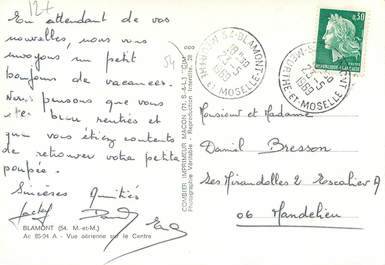 12f
En attendant de vos
nouvelles, nous vous
envoyons un petit
bonjour de vacances.
Nous pensons que vous
êtes bien rentrés et
que vous étiez contents
de retrouver votre petite
poupée.
Sincères Amitiés
54
COMBIER IMPRIMEUR MACON (71. S.-&-L.) "CIM"
Photographie Véritable - Reproduction Interdite.
54-BLAMONT
MEURTHE-ET-MOSELLE
0,30
Monsieur et Madame
Daniel Bresson
Les Mirandolles 2 Escalier A
06 Mandelieu
BLAMONT (54. M.-et-M.)
Ac 85-94 A - Vue aérienne sur le Centre